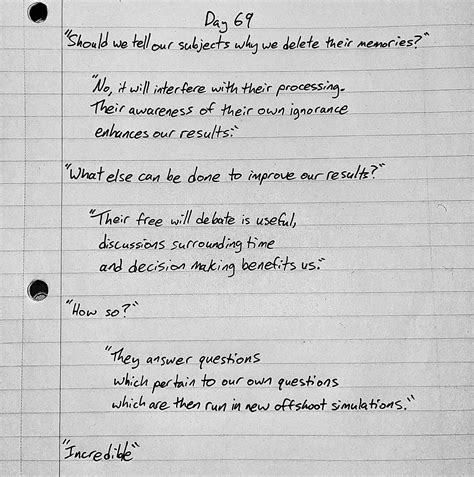 Day 69
"Should we tell our subjects why we delete their memories?"
"No, it will interfere with their processing.
Their awareness of their own ignorance
enhances our results."
"What else can be done to improve our results?"
"Their free will debate is useful,
discussions surrounding time
and decision making benefits us."
"How so?"
"They answer questions
which pertain to our own questions
which are then run in new offshoot simulations."
"Incredible"